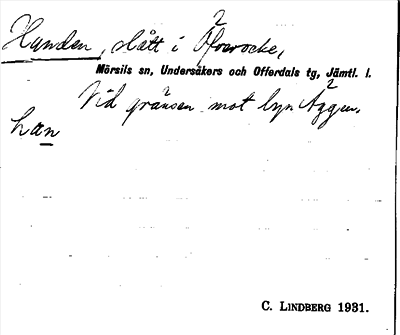 Hunden, slått i Överocke,
Mörsils sn, Undersåkers och Offerdals tg, Jämtl. l.
Vid gränsen mot byn Äggen.
han
C. LINDBERG 1931.